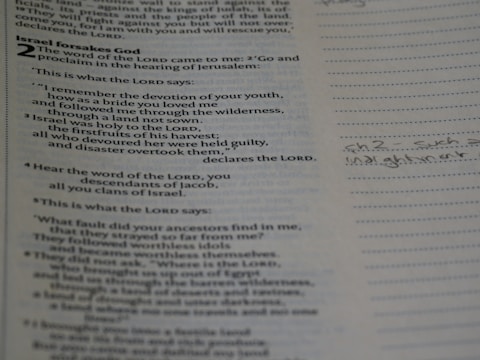 bronze wall to stand against the
– against the kings of Judah, its of-
ficials, its priests and the people of the land.
19 They will fight against you but will not over-
come you, for I am with you and will rescue you,'
declares the LORD.
Israel forsakes God
2 The word of the LORD came to me: 2 'Go and
proclaim in the hearing of Jerusalem:
'This is what the LORD says:
'"I remember the devotion of your youth,
how as a bride you loved me
and followed me through the wilderness,
through a land not sown.
3 Israel was holy to the LORD,
the firstfruits of his harvest;
all who devoured her were held guilty,
and disaster overtook them,"'
declares the LORD.
4 Hear the word of the LORD, you
descendants of Jacob,
all you clans of Israel.
5 This is what the LORD says:
'What fault did your ancestors find in me,
that they strayed so far from me?
They followed worthless idols
and became worthless themselves.
6 They did not ask, "Where is the LORD,
who brought us up out of Egypt
and led us through the barren wilderness,
through a land of deserts and ravines,
a land of drought and utter darkness,
a land where no one travels and no one
lives?"
7 I brought you into a fertile land
to eat its fruit and rich produce.
But you came and defiled my land
ch 2 - such a
indightment